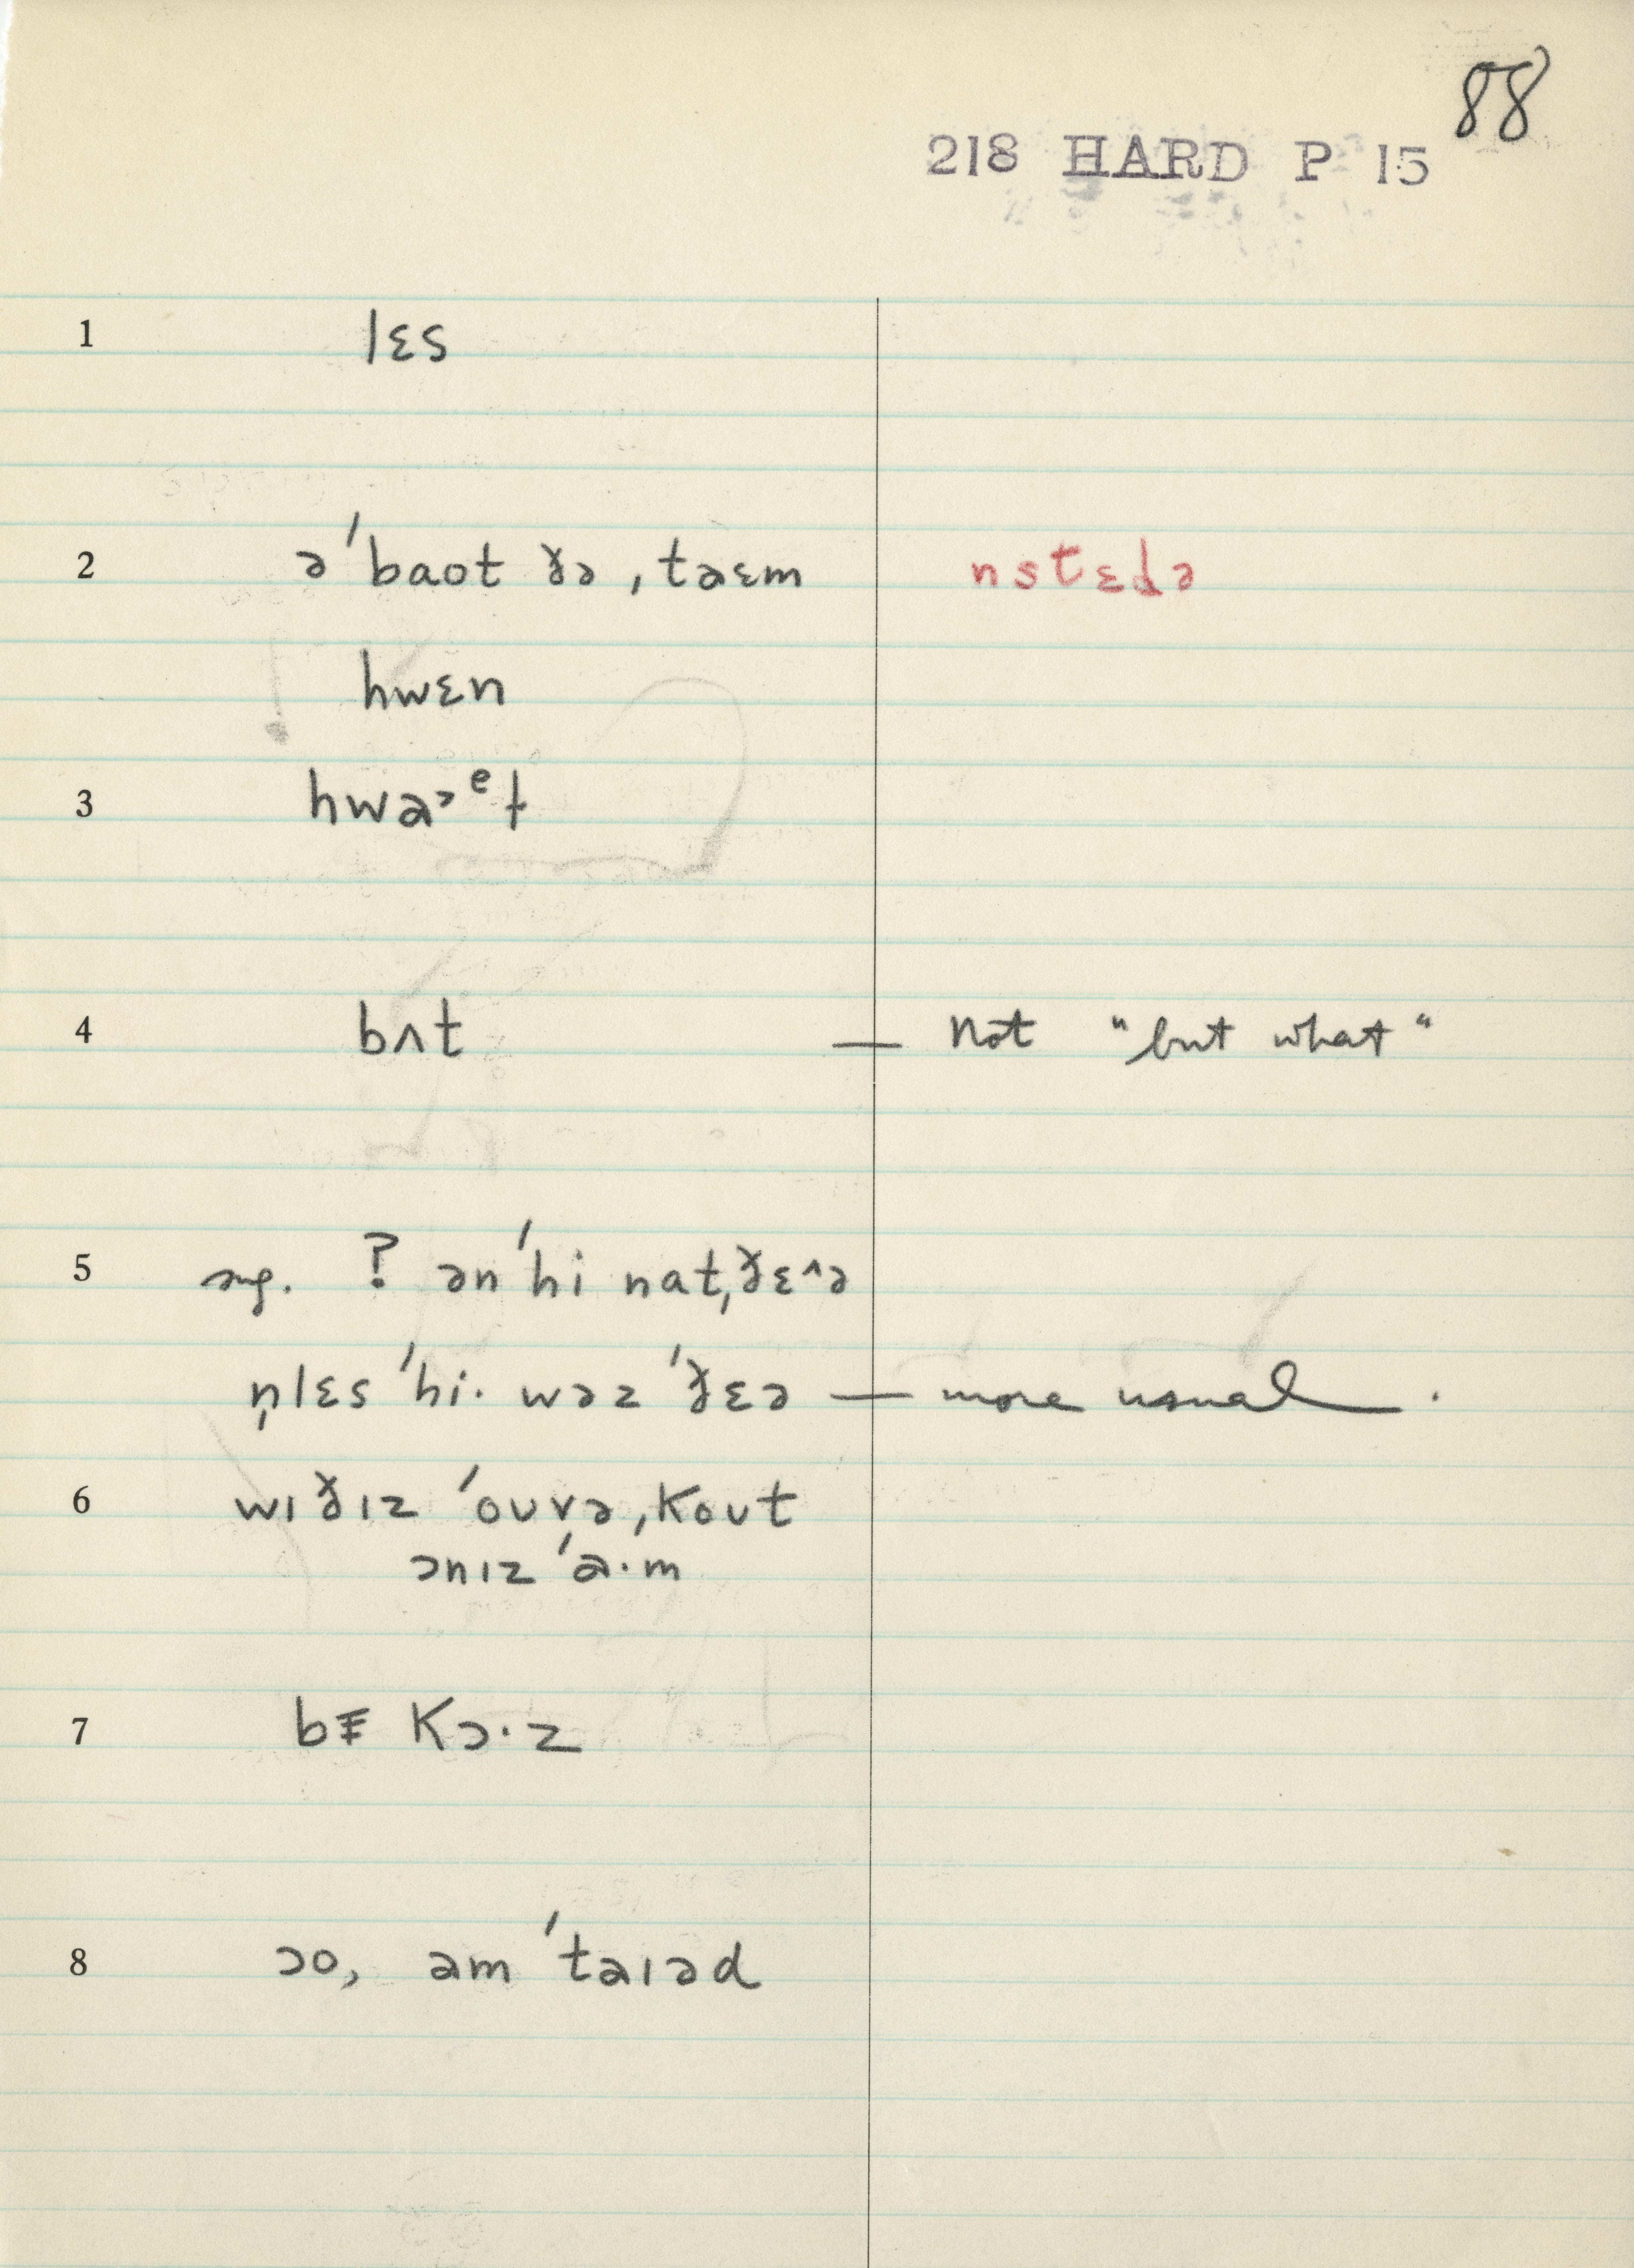 88
218 HARD P 15
1 lɛs
2 ə'baot ðə ,taɛm nstɛdə
hwɛn
3 hwaᵊᵉt
4 bʌt — not "but what"
5 sug. ? ən'hi nat,ðɛ^ə
n̩lɛs 'hi· wəz 'ðɛə — more usual .
6 wɪðɪz 'oʊvə ,koʊt
ɔnɪz 'a·m
7 kɔ·z
8 ɔo, am 'taɪəd